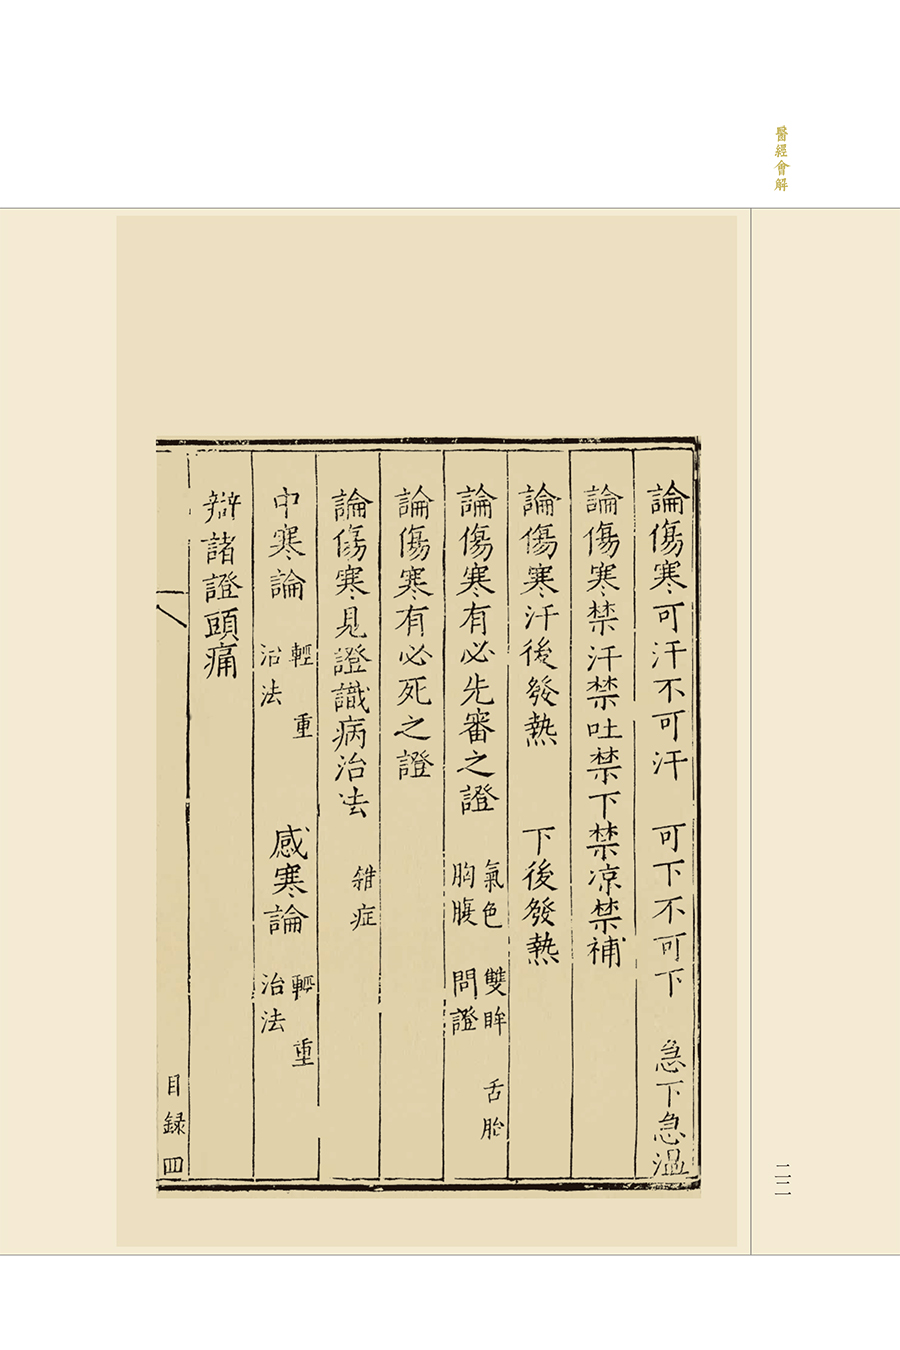 醫經會解
論傷寒可汗不可汗　可下不可下　急下急溫
論傷寒禁汗禁吐禁下禁凉禁補
論傷寒汗後發熱　下後發熱
論傷寒有必先審之證　氣色　雙眸　舌胎
胸腹　問證
論傷寒有必死之證
論傷寒見證識病治法　雜症
中寒論　輕　重
治法
感寒論　輕　重
治法
辯諸證頭痛
目録　四
二二